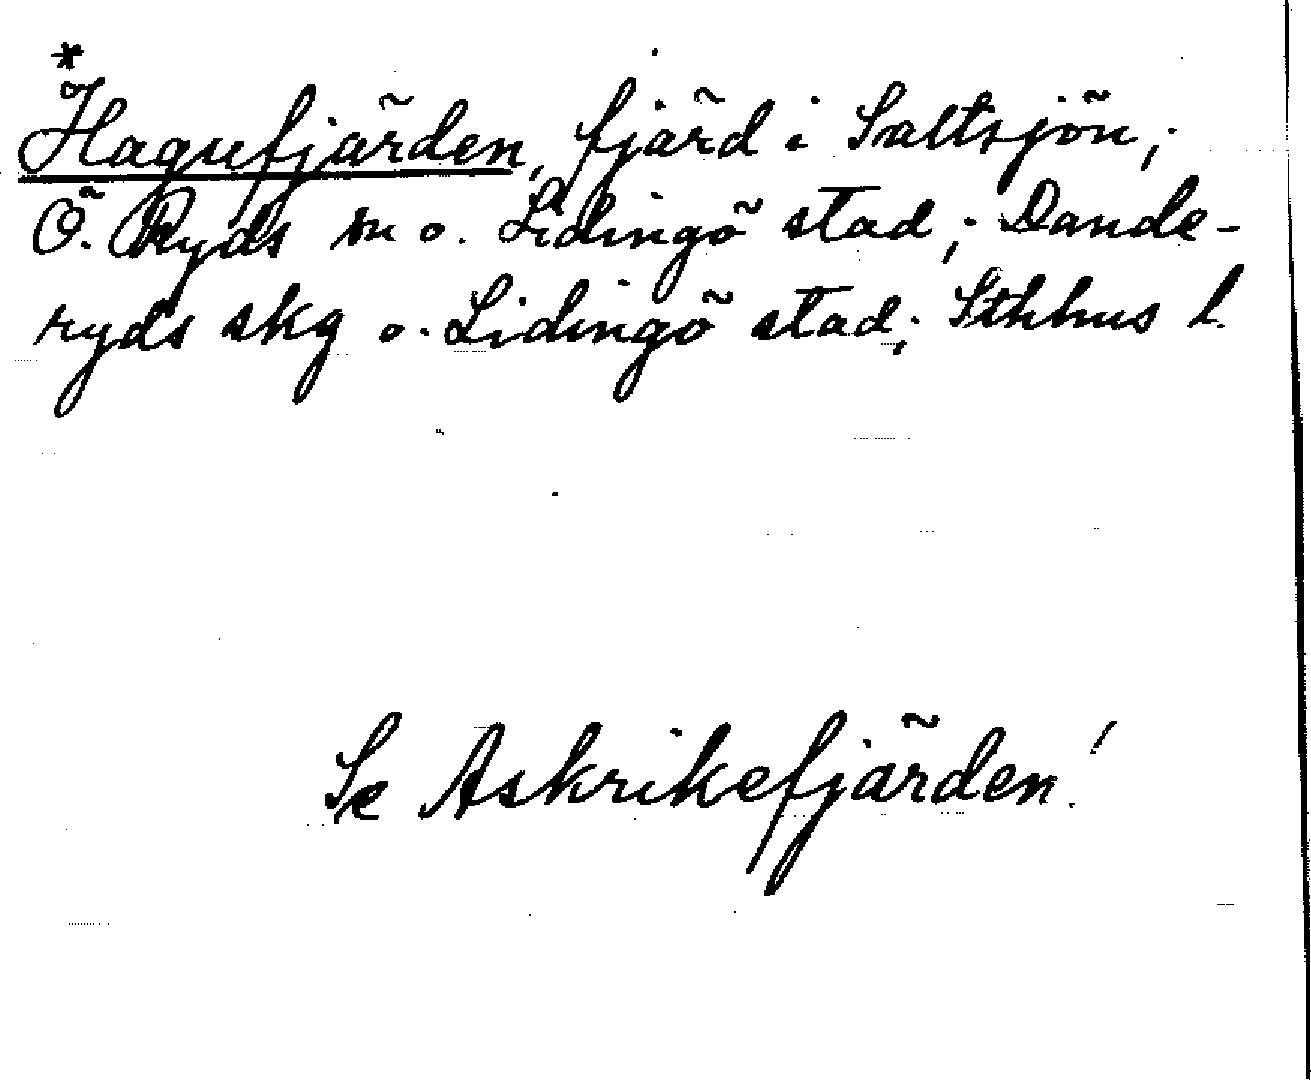 *
Hagufjärden, fjärd i Saltsjön;
Ö. Ryds sn o. Lidingö stad; Dande-
ryds skg o. Lidingö stad; Sthhus l.
Se Askrikefjärden!